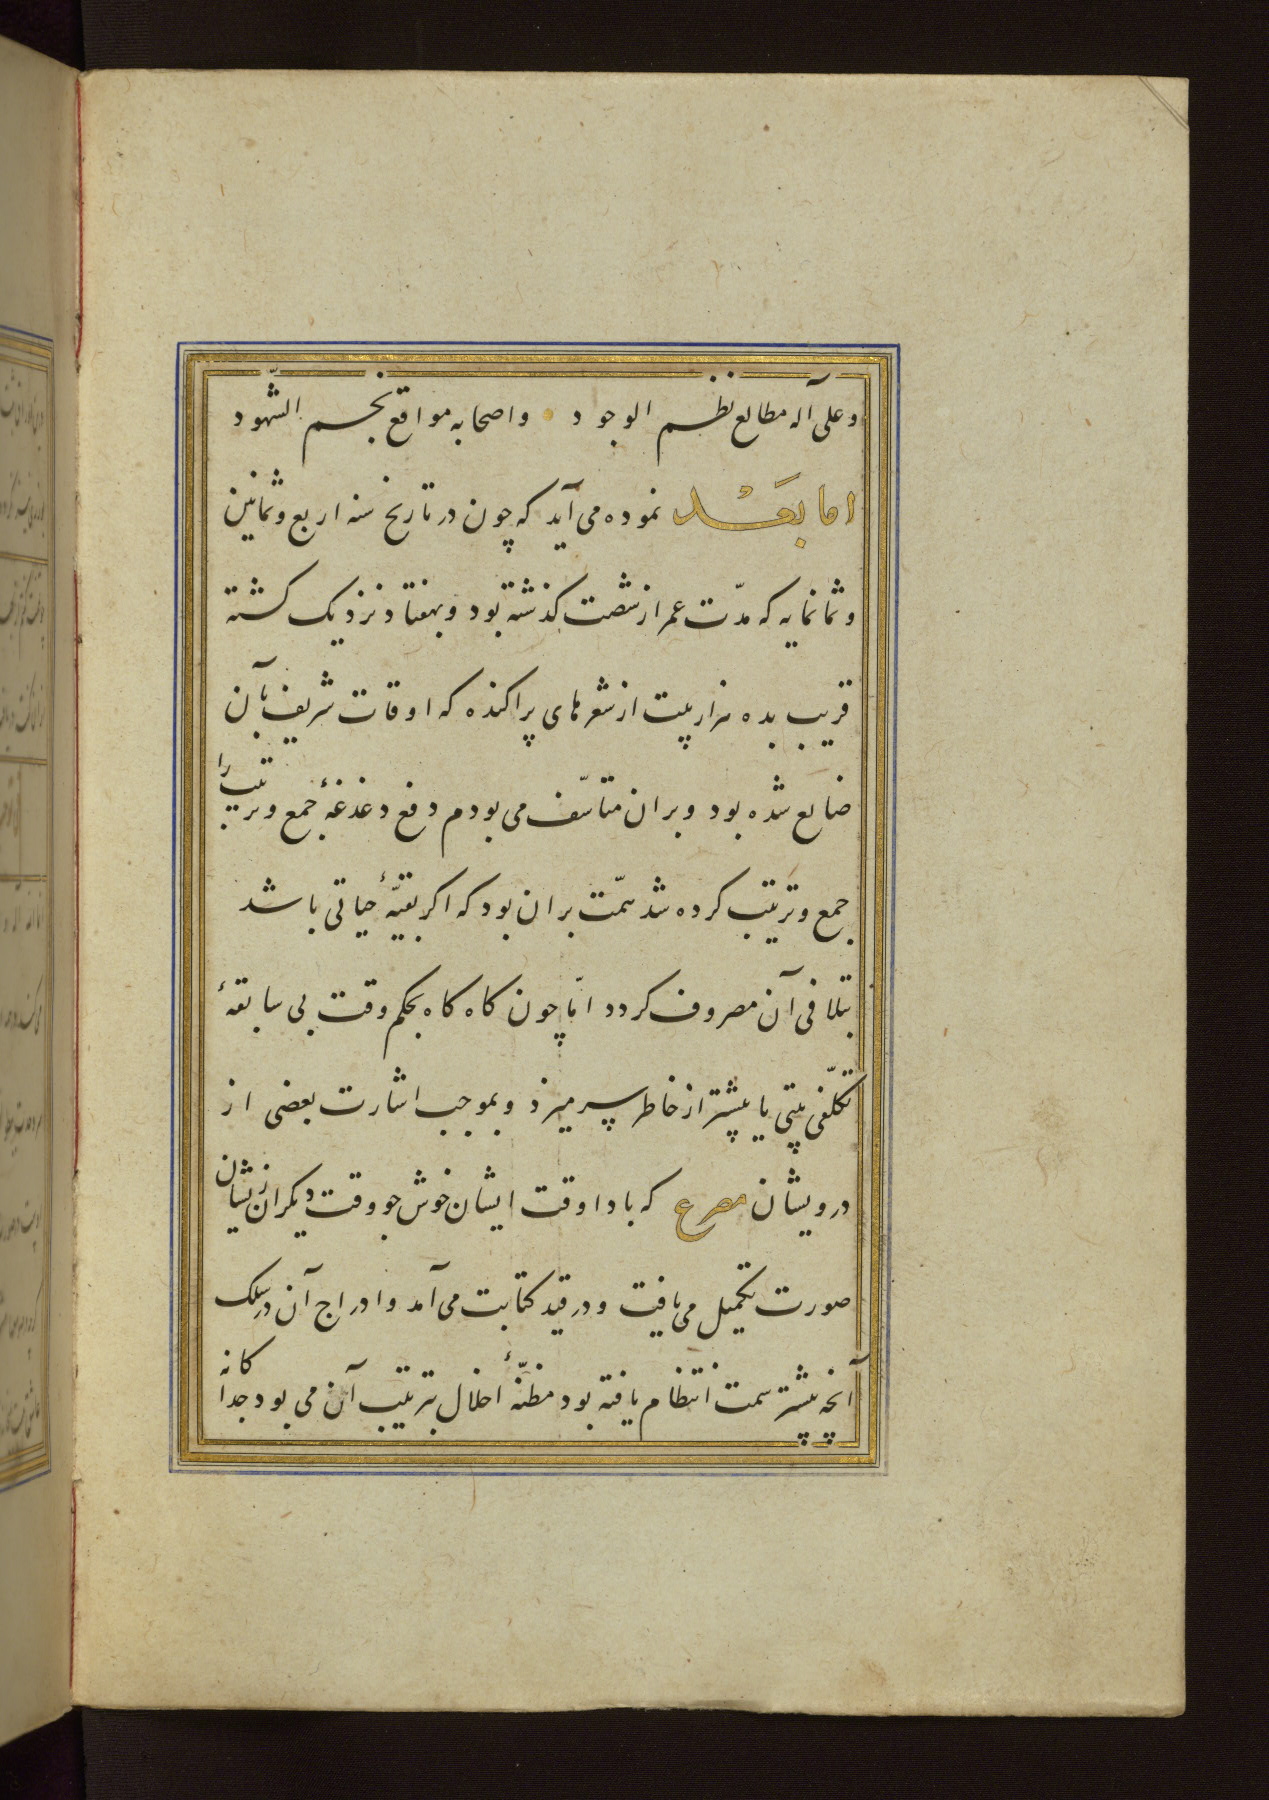 وعلی آله مطالع نظم الوجود واصحابه مواقع نجم الشّهود
اما بعد نموده می آید که چون در تاریخ سنه اربع وثمانین
وثمانمایه که مدّت عمر از شصت کذشته بود وبهفتاد نزدیک کشته
قریب بده هزار بیت از شعرهای پراکنده که اوقات شریف بآن
ضایع شده بود وبران متاسّف می بودم دفع دغدغهٔ جمع وترتیب را
جمع وترتیب کرده شد همّت بران بود که اکر بقیّهٔ حیاتی باشد
بتلافی آن مصروف کردد امّا چون کاه کاه بحکم وقت بی سابقهٔ
تکلّفی بیتی یا بیشتر از خاطر سر میزد وبموجب اشارت بعضی از
درویشان مصرع که بادا وقت ایشان خوش جو وقت دیکران زیشان
صورت تکمیل می یافت ودر قید کتابت می آمد وادراج آن در سلک
آنچه پیشتر سمت انتظام یافته بود مظنّهٔ اخلال بترتیب آن می بود جداکانه